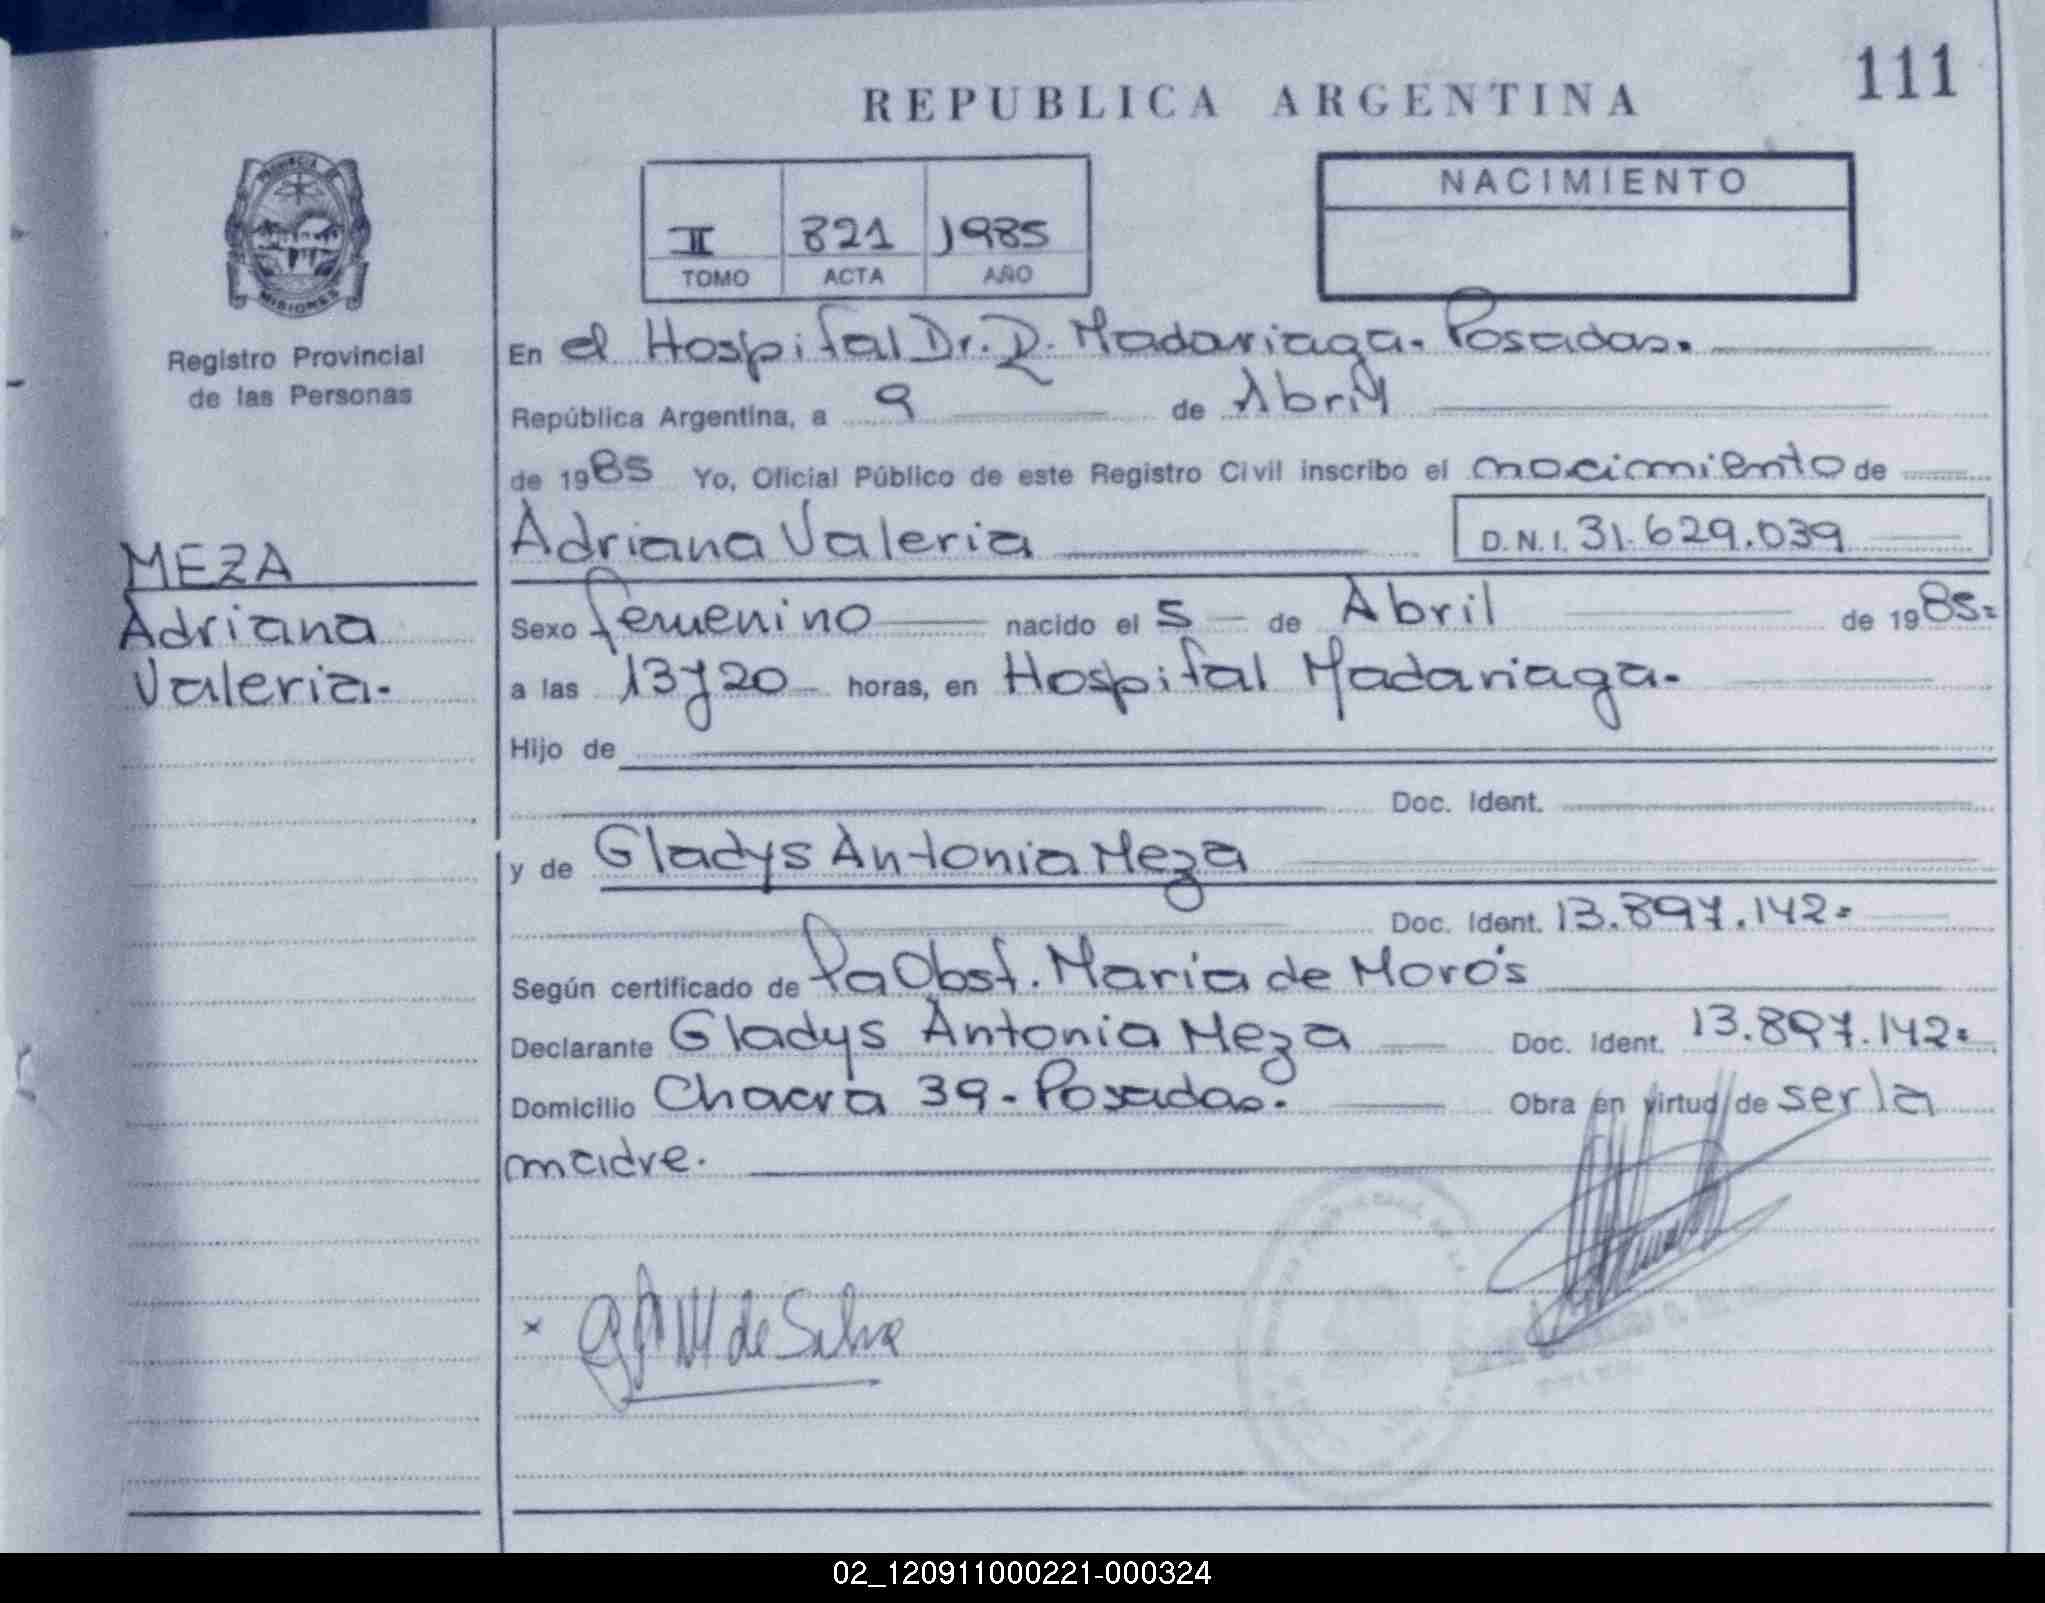 111
REPUBLICA ARGENTINA
PROVINCIA DE
MISIONES
Registro Provincial
de las Personas
II 821 1985
TOMO ACTA AÑO
NACIMIENTO
En el Hospital Dr. R. Madariaga. Posadas.
República Argentina, a 9 de Abril
de 1985 Yo, Oficial Público de este Registro Civil inscribo el nacimiento de
Adriana Valeria D.N.I. 31.629.039
MEZA
Adriana
Valeria.
Sexo femenino nacido el 5 de Abril de 1985=
a las 13y20 horas, en Hospital Madariaga.
Hijo de
Doc. Ident.
y de Gladys Antonia Meza
Doc. Ident. 13.897.142=
Según certificado de Pa Obst. Maria de Morós
Declarante Gladys Antonia Meza Doc. Ident. 13.897.142=
Domicilio Chacra 39 - Posadas. Obra en virtud de ser la
madre.
x de Silva
02_120911000221-000324